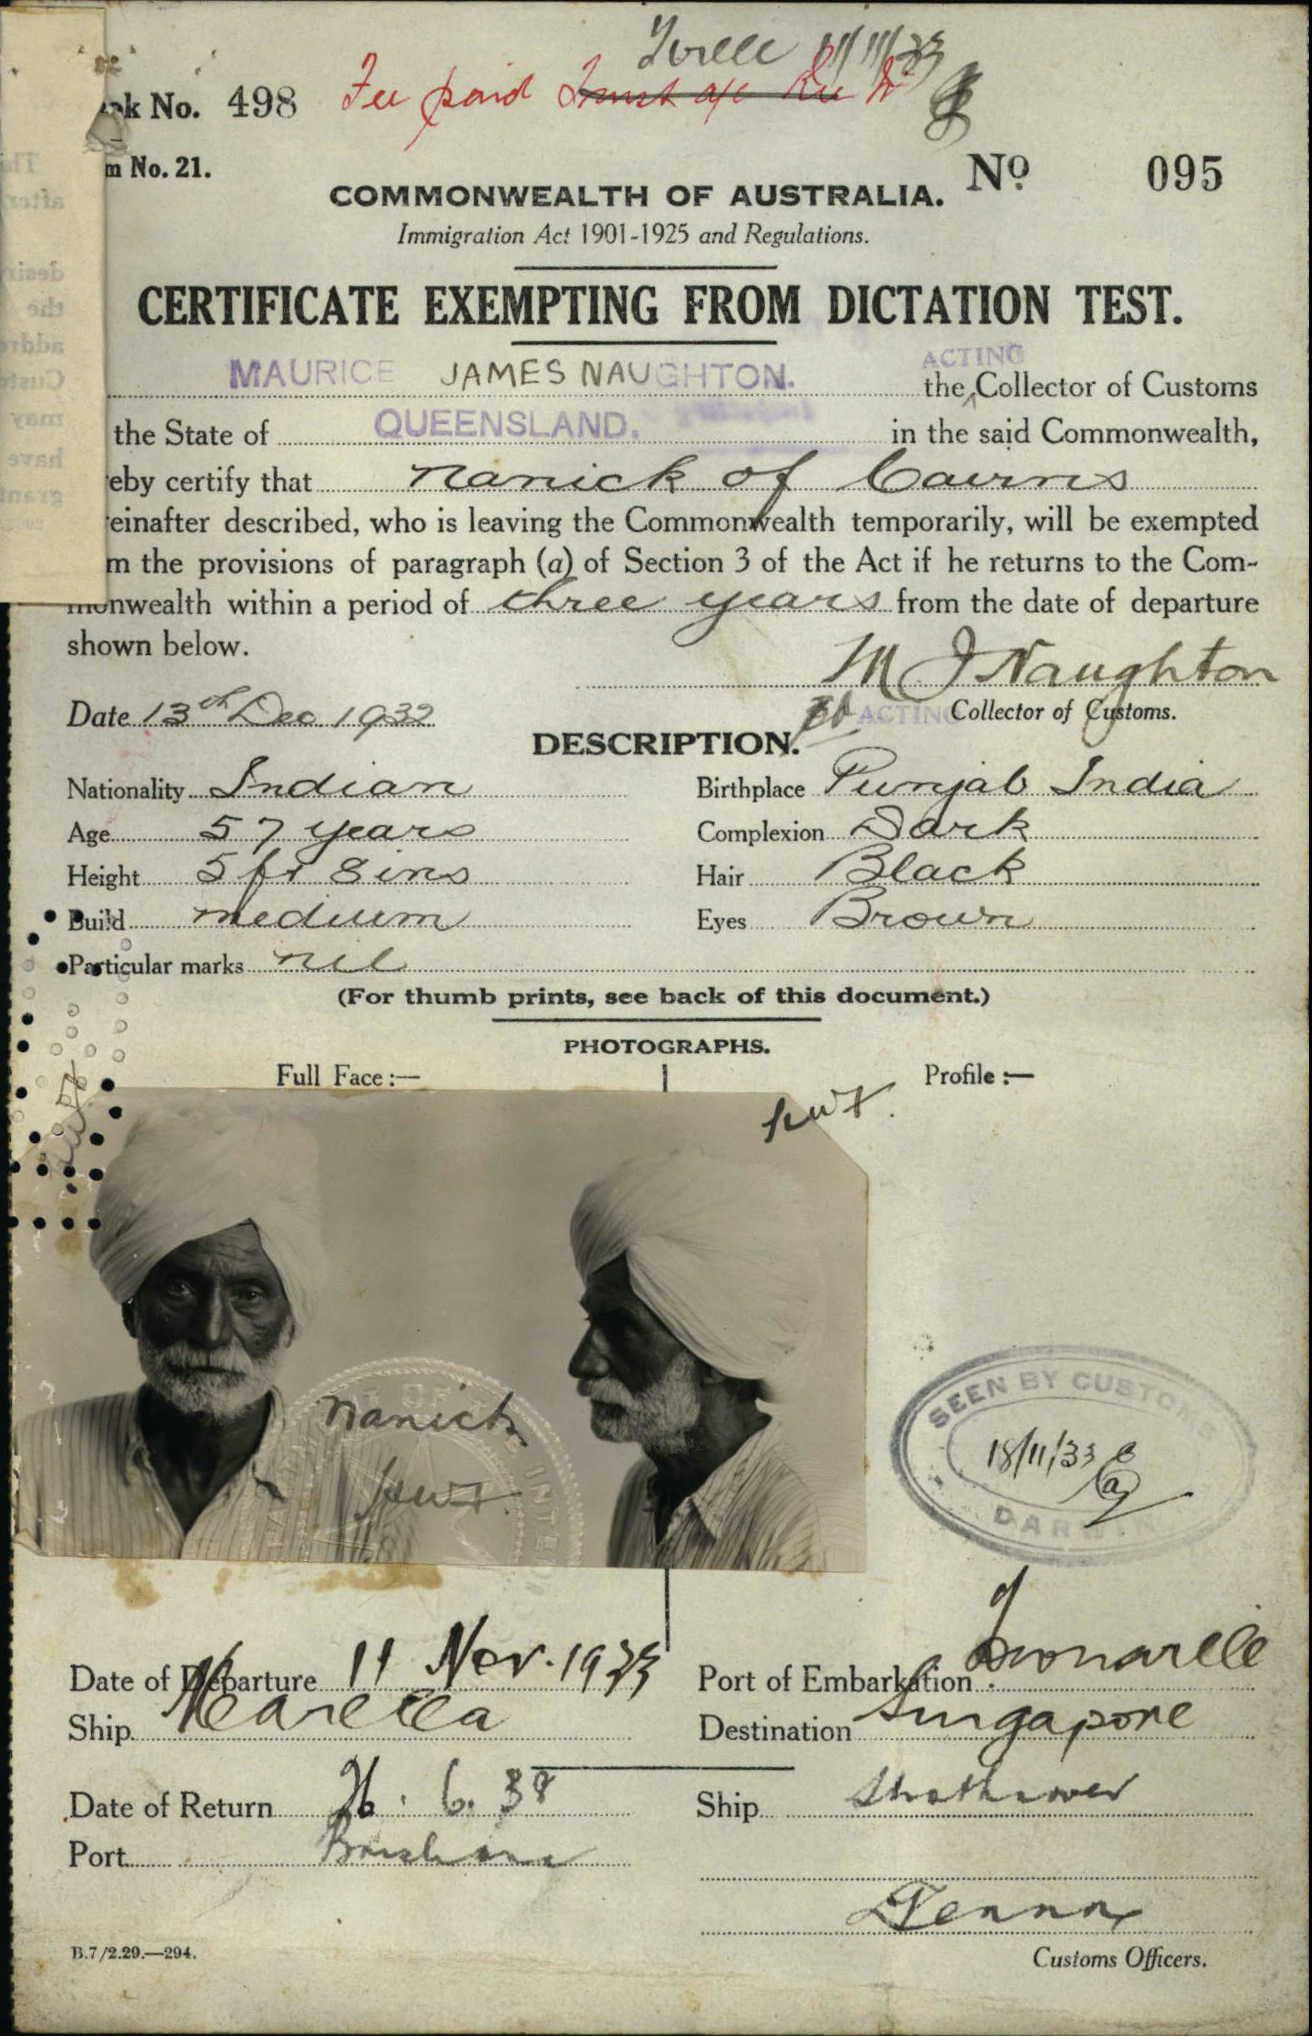 Tville 11/11/33
ok No. 498 Fee paid Trust a/c
m No. 21.
No. 095
COMMONWEALTH OF AUSTRALIA.
Immigration Act 1901-1925 and Regulations.
CERTIFICATE EXEMPTING FROM DICTATION TEST.
MAURICE JAMES NAUGHTON. ACTING
the Collector of Customs
the State of QUEENSLAND. in the said Commonwealth,
eby certify that Nanick of Cairns
einafter described, who is leaving the Commonwealth temporarily, will be exempted
m the provisions of paragraph (a) of Section 3 of the Act if he returns to the Com-
monwealth within a period of three years from the date of departure
shown below.
M J Naughton
Date 13th Dec 1932 ACTING Collector of Customs.
DESCRIPTION.
Nationality Indian Birthplace Punjab India
Age 57 years Complexion Dark
Height 5 ft 8 ins Hair Black
Build medium Eyes Brown
Particular marks nil
(For thumb prints, see back of this document.)
PHOTOGRAPHS.
Full Face :— Profile :—
Nanick
SEEN BY CUSTOMS
18/11/33
DARWIN
Date of Departure 11 Nov. 1933 Port of Embarkation Townsville
Ship Marella Destination Singapore
Date of Return 26. 6. 38 Ship
Port Brisbane
B.7/2.29.—294. Customs Officers.